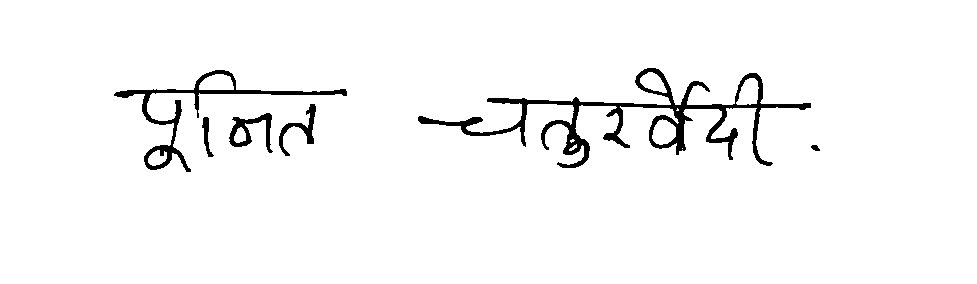 पूनित चतुरर्वेदी.